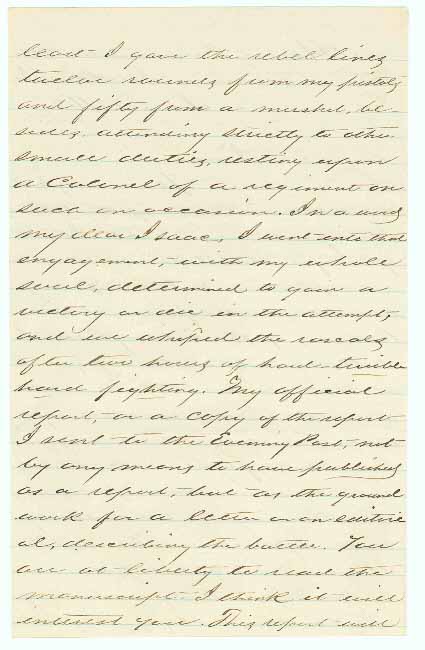 least I gave the rebel lines
twelve rounds from my pistols
and fifty from a musket, be-
sides attending strictly to other
small duties, resting upon
a Colonel of a regiment on
such an occasion. In a word
my dear Isaac, I went into that
engagement, with my whole
soul, determined to gain a
victory or die in the attempt,
and we whiped the rascals
after two hours of hard-terrible
hard fighting. My official
report, or a copy of the report
I sent to the Evening Post, not
by any means to have published
as a report, but as the ground
work for a letter or an editori
al, describing the battle. You
are at liberty to read the
manuscript. I think it will
interest you. This report will